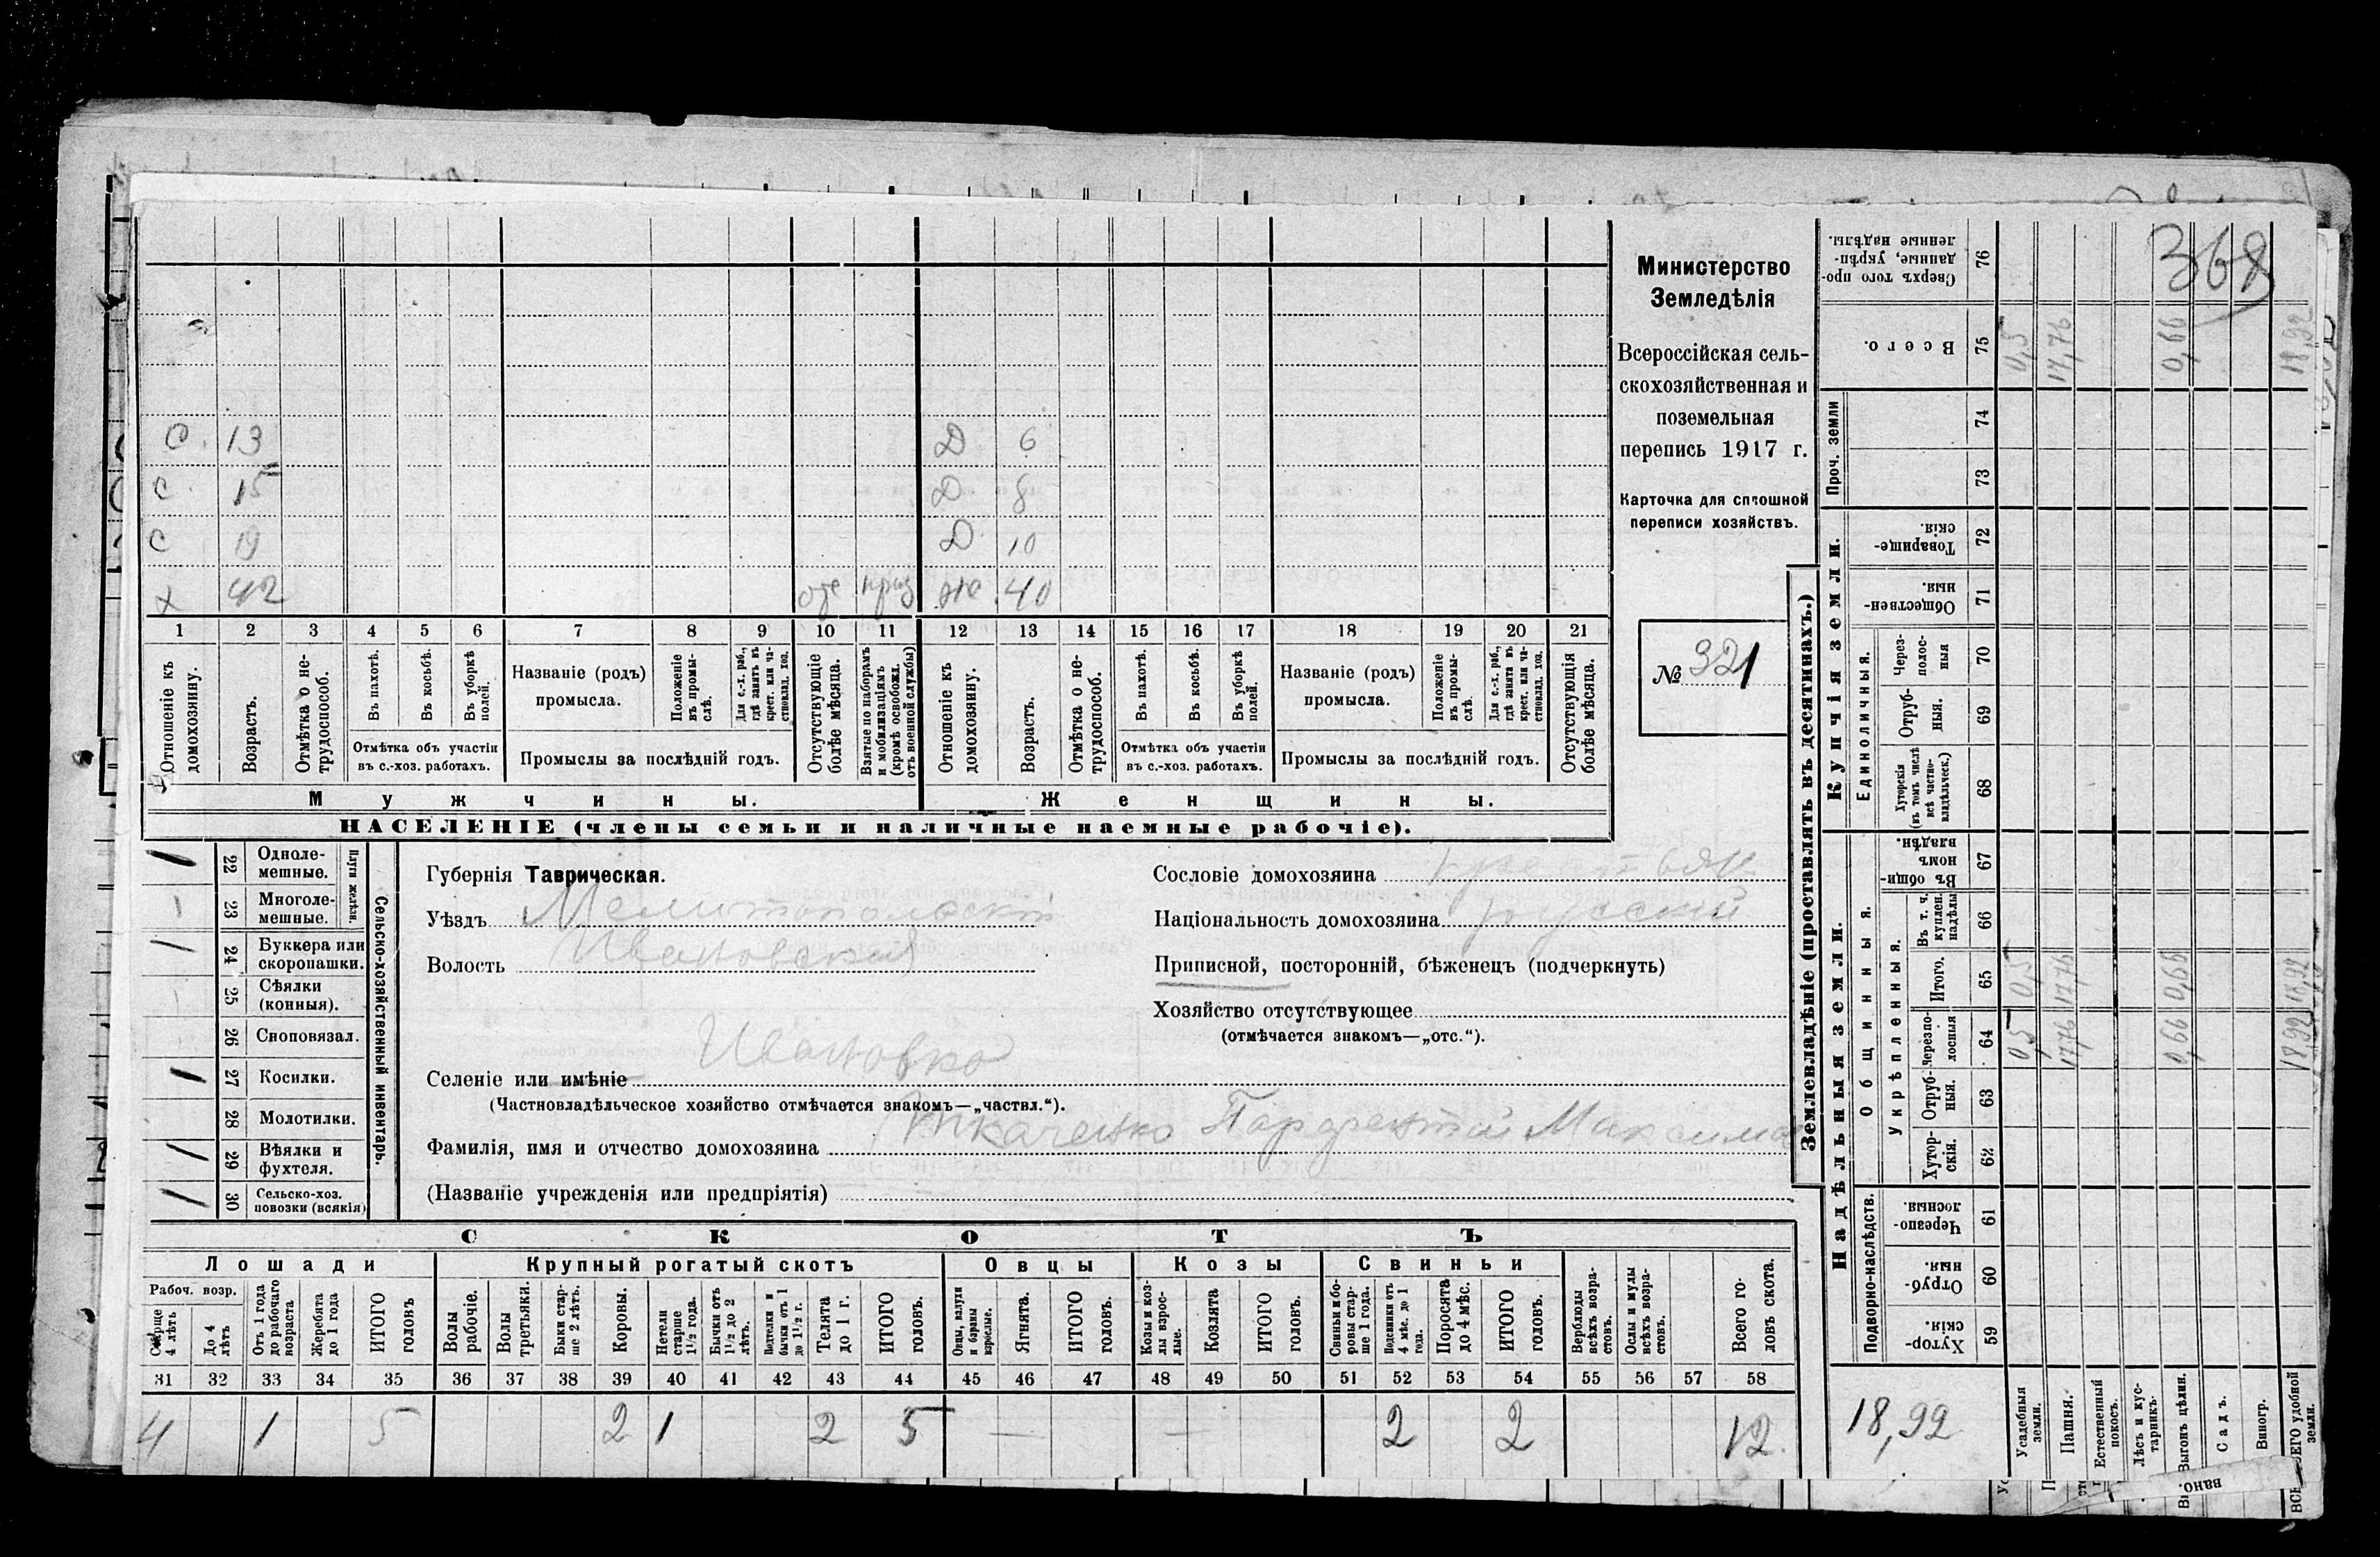 368
Министерство
Земледѣлія
Всероссійская сель-
скохозяйственная и
поземельная
перепись 1917 г.
Карточка для сплошной
переписи хозяйствъ.
№ 321
С. 13 Д 6
С. 15 Д 8
С 19 Д. 10
х 42 отс приз ж 40
1 2 3 4 5 6 7 8 9 10 11 12 13 14 15 16 17 18 19 20 21
Отношеніе къ домохозяину.
Возрастъ.
Отмѣтка о не-трудоспособ.
Въ пахотѣ.
Въ косьбѣ.
Въ уборкѣ полей.
Отмѣтка объ участіи
въ с.-хоз. работахъ.
Названіе (родъ)
промысла.
Положеніе въ промы-слѣ.
Для с.-х. раб., гдѣ занятъ въ крест. или ча-стновлад. хоз.
Промыслы за послѣдній годъ.
Отсутствующіе болѣе мѣсяца.
Взятые по наборамъ и мобилизаціямъ (кромѣ освобожд. отъ военной службы)
Отношеніе къ домохозяину.
Возрастъ.
Отмѣтка о не-трудоспособ.
Въ пахотѣ.
Въ косьбѣ.
Въ уборкѣ полей.
Отмѣтка объ участіи
въ с.-хоз. работахъ.
Названіе (родъ)
промысла.
Положеніе въ промы-слѣ.
Для с.-х. раб., гдѣ занята въ крест. или ча-стновлад. хоз.
Промыслы за послѣдній годъ.
Отсутствующія болѣе мѣсяца.
Мужчины.
Женщины.
НАСЕЛЕНІЕ (члены семьи и наличные наемные рабочіе).
Сельско-хозяйственный инвентарь.
Плуги желѣзн.
1 22 Одноле-мешные.
1 23 Многоле-мешные.
1 24 Буккера или скоропашки.
25 Сѣялки (конныя).
26 Сноповязал.
1 27 Косилки.
28 Молотилки.
1 29 Вѣялки и фухтеля.
1 30 Сельско-хоз. повозки (всякія)
Губернія Таврическая.
Уѣздъ Мелитопольскій
Волость Ивановская
Сословіе домохозяина крестьян
Національность домохозяина русскій
Приписной, посторонній, бѣженецъ (подчеркнуть)
Хозяйство отсутствующее
(отмѣчается знакомъ—„отс.“).
Селеніе или имѣніе Ивановка
(Частновладѣльческое хозяйство отмѣчается знакомъ—„частвл.“).
Фамилія, имя и отчество домохозяина Ткаченко Парфентій Максимов
(Названіе учрежденія или предпріятія)
СКОТЪ
Лошади Крупный рогатый скотъ Овцы Козы Свиньи
Рабоч. возр.
Старше 4 лѣтъ
До 4 лѣтъ
Отъ 1 года до рабочаго возраста
Жеребята до 1 года
ИТОГО головъ
Волы рабочіе.
Волы третьяки.
Быки стар-ше 2 лѣтъ.
Коровы.
Нетели старше 1½ года.
Бычки отъ 1½ до 2 лѣтъ.
Телятки и бычки отъ 1 до 1½ г.
Телята до 1 г.
ИТОГО головъ.
Овцы, валухи и бараны взрослые.
Ягнята.
ИТОГО головъ.
Козы и коз-лы взрос-лые.
Козлята
ИТОГО головъ.
Свиньи и бо-ровы стар-ше 1 года.
Подсвинки отъ 4 мѣс. до 1 года.
Поросята до 4 мѣс.
ИТОГО головъ.
Верблюды всѣхъ возра-стовъ.
Ослы и мулы всѣхъ возра-стовъ.
Всего го-ловъ скота.
31 32 33 34 35 36 37 38 39 40 41 42 43 44 45 46 47 48 49 50 51 52 53 54 55 56 57 58
4 1 5 2 1 2 5 — — 2 2 12
Землевладѣніе (проставлять въ десятинахъ.)
Купчія земли.
Надѣльныя земли.
Сверхъ того про-данные, укрѣп-ленные надѣлы. 76
Всего. 75 0,5 17,76 0,66 18,92
Проч. земли 74
73
Товарище-скія. 72
Обществен-ныя. 71
Единоличныя.
Через-полос-ныя 70
Отруб-ныя. 69
Хуторскія (въ томъ числѣ всѣ частно-владѣльческ.) 68
Общинныя.
Въ общи-номъ владѣн. 67
Укрѣпленныя.
Въ т. ч. куплен. надѣлы 66
Итого. 65 0,5 17,76 0,66 18,92
Черезпо-лосныя 64 0,5 17,76 0,66 18,92
Отруб-ныя. 63
Хутор-скія. 62
Подворно-наслѣдств.
Черезпо-лосныя 61
Отруб-ныя. 60
Хутор-скія. 59
18,92
Усадебныя земли.
Пашня.
Естественный покосъ.
Лѣсъ и кус-тарникъ.
Выгонъ цѣлин.
Садъ.
Виногр.
ВСЕГО удобной земли.
вано.